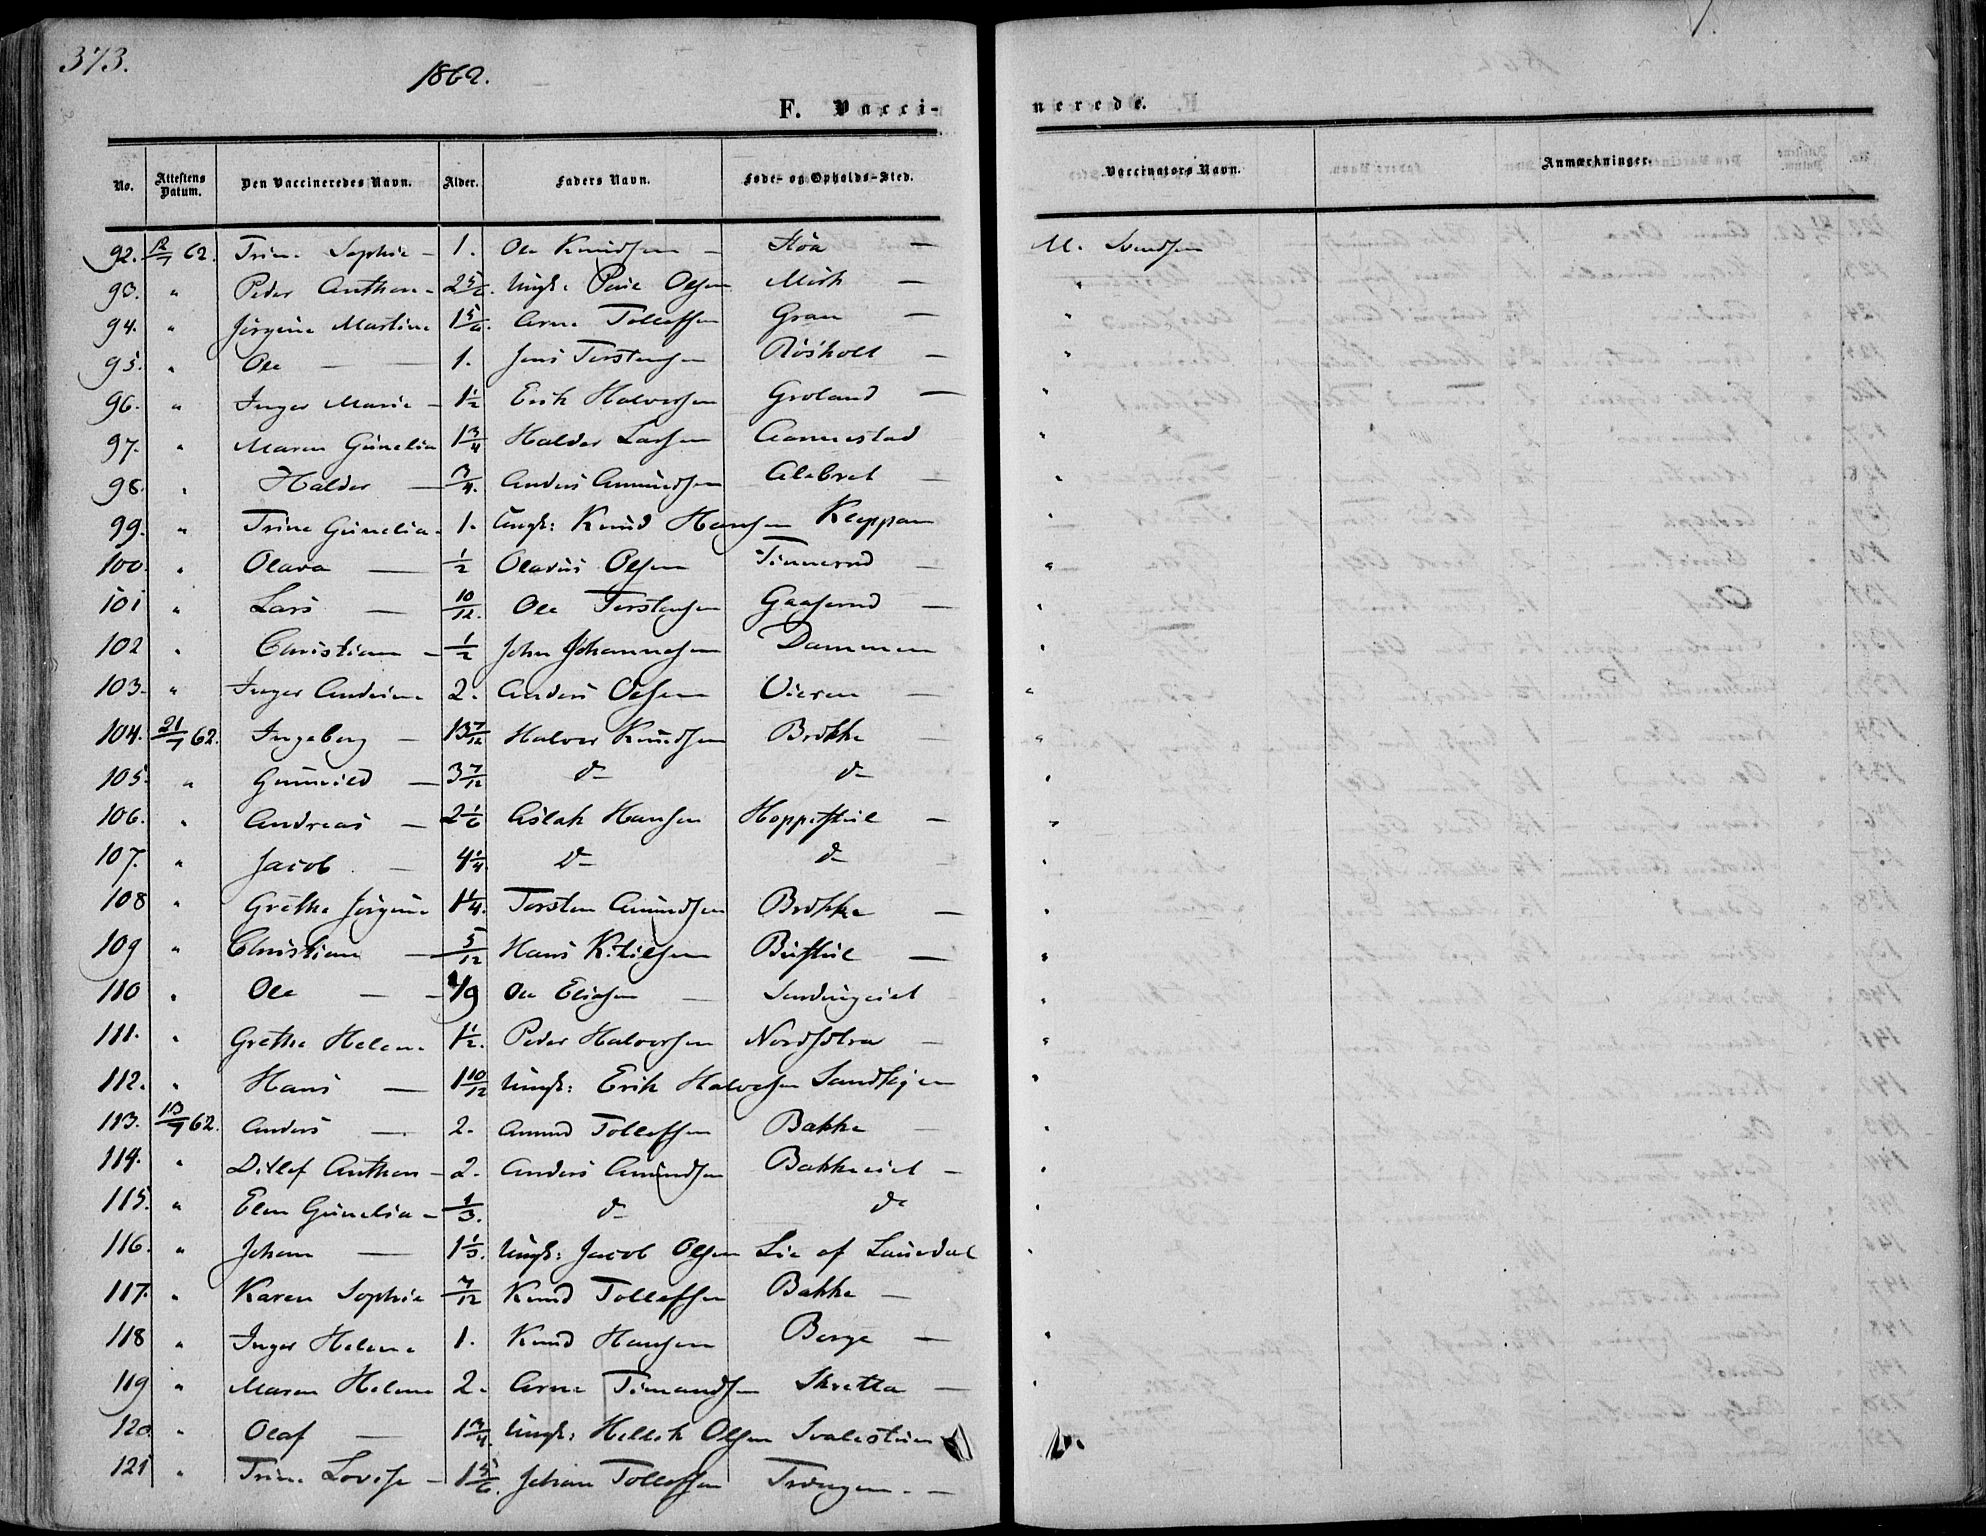 373.
1862.
F. Vacci-
nerede.
No. Attestens Datum. Den Vaccineredes Navn. Alder. Faders Navn. Føde- og Opholds-Sted. Vaccinators Navn. Anmærkninger.
92. 12/7 62. Trine Sophie - 1. Ole Knudsen - Höa - M. Svendsen
93. " Peder Anthon - 2 5/6. Ungk: Poul Olsen -
94. " Jörgine Martine 1 5/6. Arne Tollefsen Gran - "
95. " Ole - 1. Jens Torstensen Rösholt - "
96. " Inger Marie - 1 1/2 Erik Halvorsen Groland - "
97. " Maren Gunelia 1 3/4 Halvor Larsen Aannestad "
98. " Halvor - 3/4. Anders Amundsen "
99. " Trine Gunelia - 1. Ungk: Knud Hansen Kleppan "
100. " Olava - 1/2 Olavus Olsen Tinnerud - "
101 " Lars - 10/12. Ole Torstensen Gaaserud - "
102 " Christian - 1/2 John Johannesen Dammen "
103. " Inger Andrine 2. Anders Olsen Vieren - "
104. 21/7 62. Ingeborg - 13 7/12 Halvor Knudsen Brokke - "
105. " Gunnild - 3 7/12 do do "
106. " Andreas - 2 1/6 Aslak Hansen -
107. " Jacob - 4 1/4. do do - "
108 " Grethe Jörgine 1 1/4. Torsten Amundsen Brokke - "
109 " Christian - 5/12 Hans Ketilsen - "
110 " Ole - - Ole Eliasen - "
111. " Grethe Helene 1 1/2. Peder Halvorsen - "
112. " Hans - 1 10/12 Ungk: Erik Halvorsen "
113. 13/7 62. Anders - 2. Amund Tollefsen Bakke - "
114. " Ditlef Anthon - 2. Anders Amundsen Bakkeeiet - "
115. " Elen Gunelia - 1/3. do do "
116. " Johan - 1 1/3. Ungk: Jacob Olsen Lie af Lauvdal "
117. " Karen Sophie 7/12 Knud Tollefsen Bakke -
118 " Inger Helene 1. Knud Hansen Berge - "
119 " Maren Helene 2. Arne Timandsen Skretta - "
120. " Olaf - 1 3/4. Ungk: Hellek Olsen
121 " Trine Lovise - 1 5/6. Johan Tollefsen -